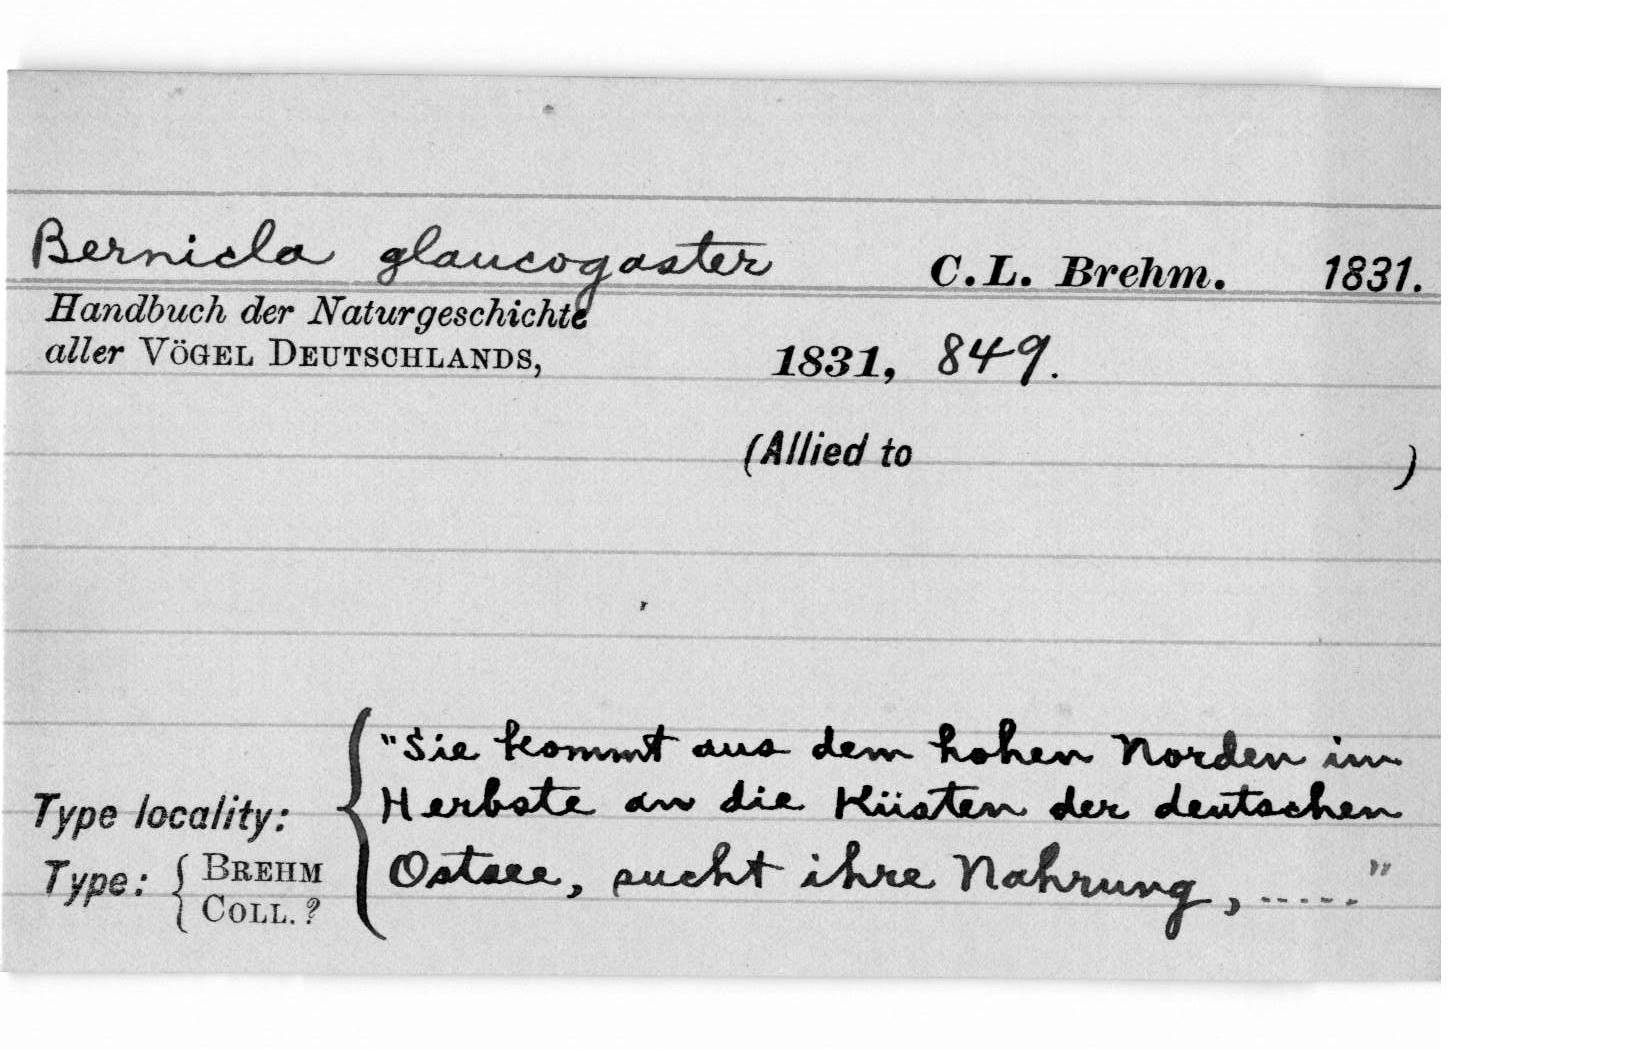 Bernicla glaucogaster C.L. Brehm. 1831.
Handbuch der Naturgeschichte
aller VÖGEL DEUTSCHLANDS, 1831, 849.
(Allied to )
"Sie kommt aus dem hohen Norden im
Type locality: Herbste an die Küsten der deutschen
Type: BREHM COLL. ? Ostsee, sucht ihre Nahrung, ....."